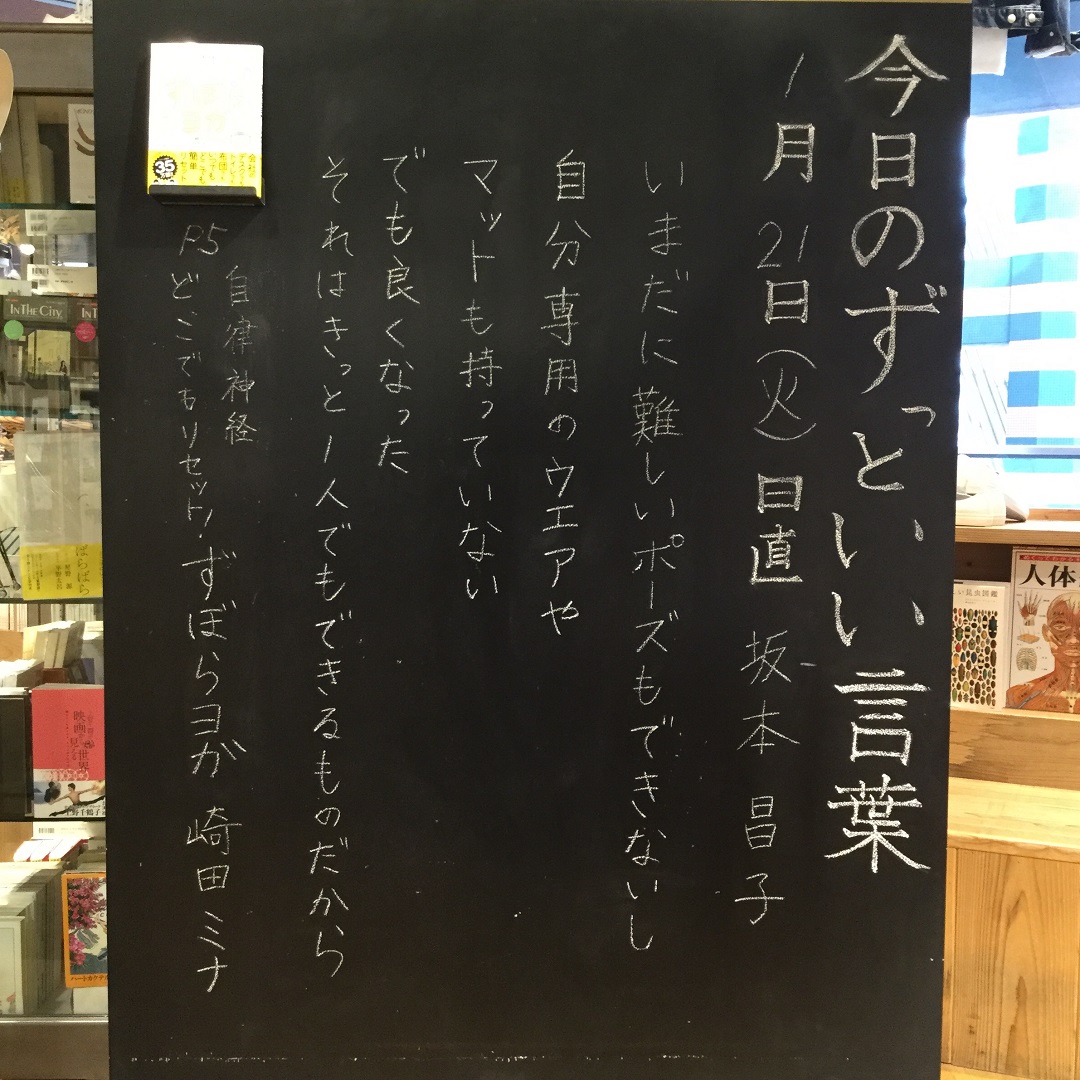 今日のずっといい言葉
1月21日(火)日直 坂本 昌子
いまだに難しいポーズもできないし
自分専用のウエアや
マットも持っていない
でも良くなった
それはきっと1人でもできるものだから
自律神経
P5 どこでもリセット! ずぼらヨガ 崎田ミナ
35
簡単
リセット
IN THE CITY
ぱらぱら
映画の
世界
人体
ハートカクテル